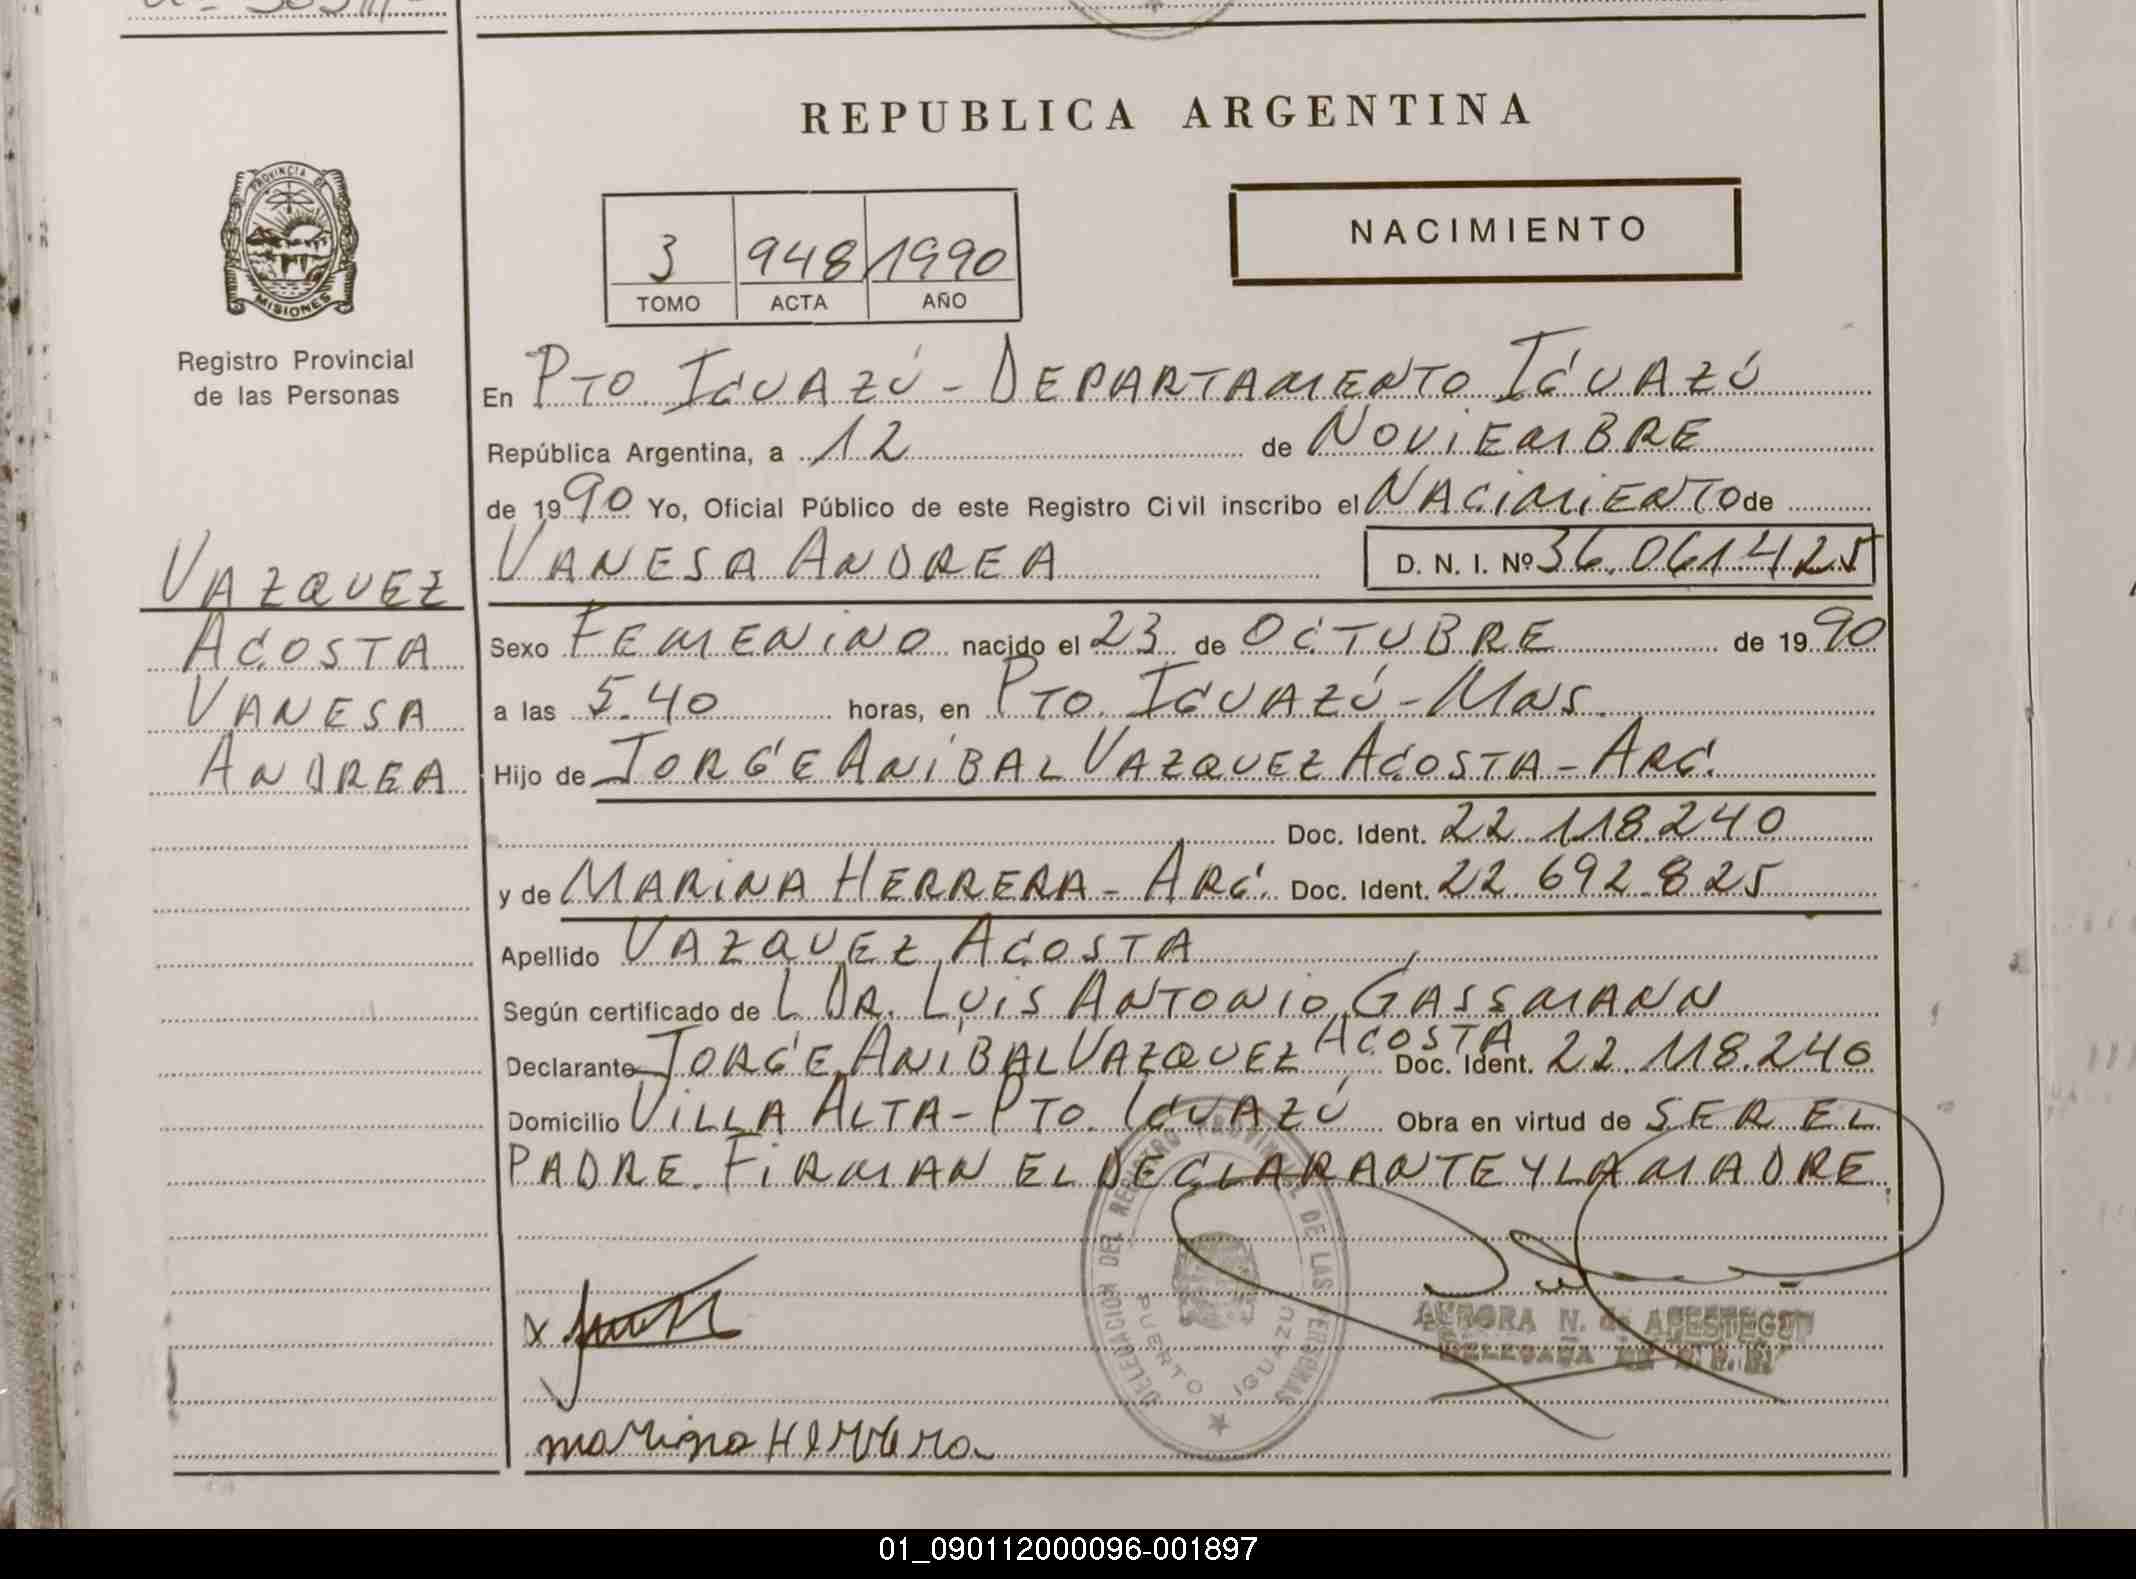 REPUBLICA ARGENTINA
PROVINCIA DE
MISIONES
Registro Provincial
de las Personas
NACIMIENTO
3 948 1990
TOMO ACTA AÑO
En PTO. IGUAZÚ - DEPARTAMENTO IGUAZÚ
República Argentina, a 12 de NOVIEMBRE
de 1990 Yo, Oficial Público de este Registro Civil inscribo el NACIMIENTO de
VANESA ANDREA D. N. I. Nº 36.061.425
VAZQUEZ
ACOSTA
VANESA
ANDREA
Sexo FEMENINO nacido el 23 de OCTUBRE de 1990
a las 5.40 horas, en PTO. IGUAZÚ - MNS.
Hijo de JORGE ANIBAL VAZQUEZ ACOSTA - ARG.
Doc. Ident. 22.118.240
y de MARINA HERRERA - ARG. Doc. Ident. 22.692.825
Apellido VAZQUEZ ACOSTA
Según certificado de L DR. LUIS ANTONIO GASSMANN
Declarante JORGE ANIBAL VAZQUEZ ACOSTA Doc. Ident. 22.118.240
Domicilio VILLA ALTA - PTO. IGUAZÚ Obra en virtud de SER EL
PADRE. FIRMAN EL DECLARANTE Y LA MADRE.
DELEGACION DEL REGISTRO PROVINCIAL DE LAS PERSONAS
PUERTO IGUAZU
AURORA N. de
DELEGADA
x
marina Herrera
01_090112000096-001897